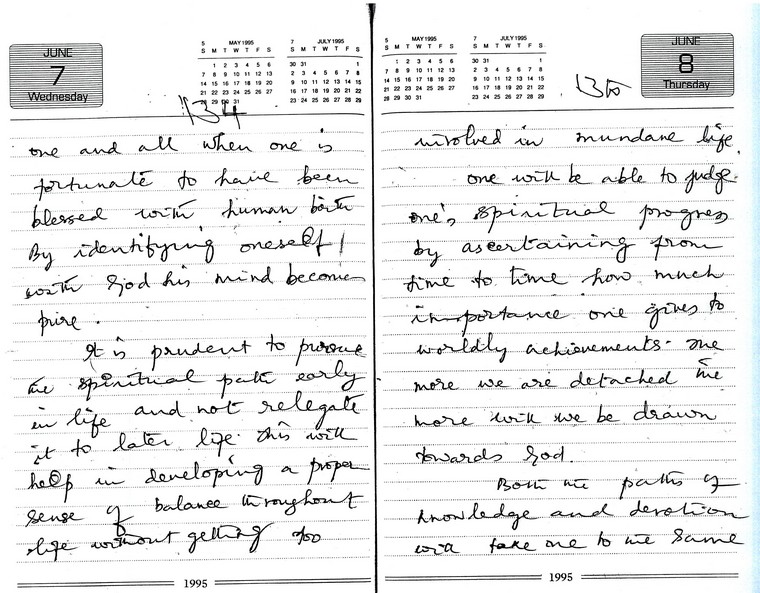 JUNE
7
Wednesday
5 MAY 1995
S M T W T F S
1 2 3 4 5 6
7 8 9 10 11 12 13
14 15 16 17 18 19 20
21 22 23 24 25 26 27
28 29 30 31
7 JULY 1995
S M T W T F S
30 31 1
2 3 4 5 6 7 8
9 10 11 12 13 14 15
16 17 18 19 20 21 22
23 24 25 26 27 28 29
134
one and all when one is
fortunate to have been
blessed with human birth
By identifying oneself
with God his mind becomes
pure.
It is prudent to pursue
the spiritual path early
in life and not relegate
it to later life. this will
help in developing a proper
sense of balance throughout
life without getting too
1995
5 MAY 1995
S M T W T F S
1 2 3 4 5 6
7 8 9 10 11 12 13
14 15 16 17 18 19 20
21 22 23 24 25 26 27
28 29 30 31
7 JULY 1995
S M T W T F S
30 31 1
2 3 4 5 6 7 8
9 10 11 12 13 14 15
16 17 18 19 20 21 22
23 24 25 26 27 28 29
135
JUNE
8
Thursday
involved in mundane life.
one will be able to judge
one's spiritual progress
by ascertaining from
time to time how much
importance one gives to
worldly achievements. The
more we are detached the
more will we be drawn
towards God.
Both the paths of
knowledge and devotion
will take one to the same
1995